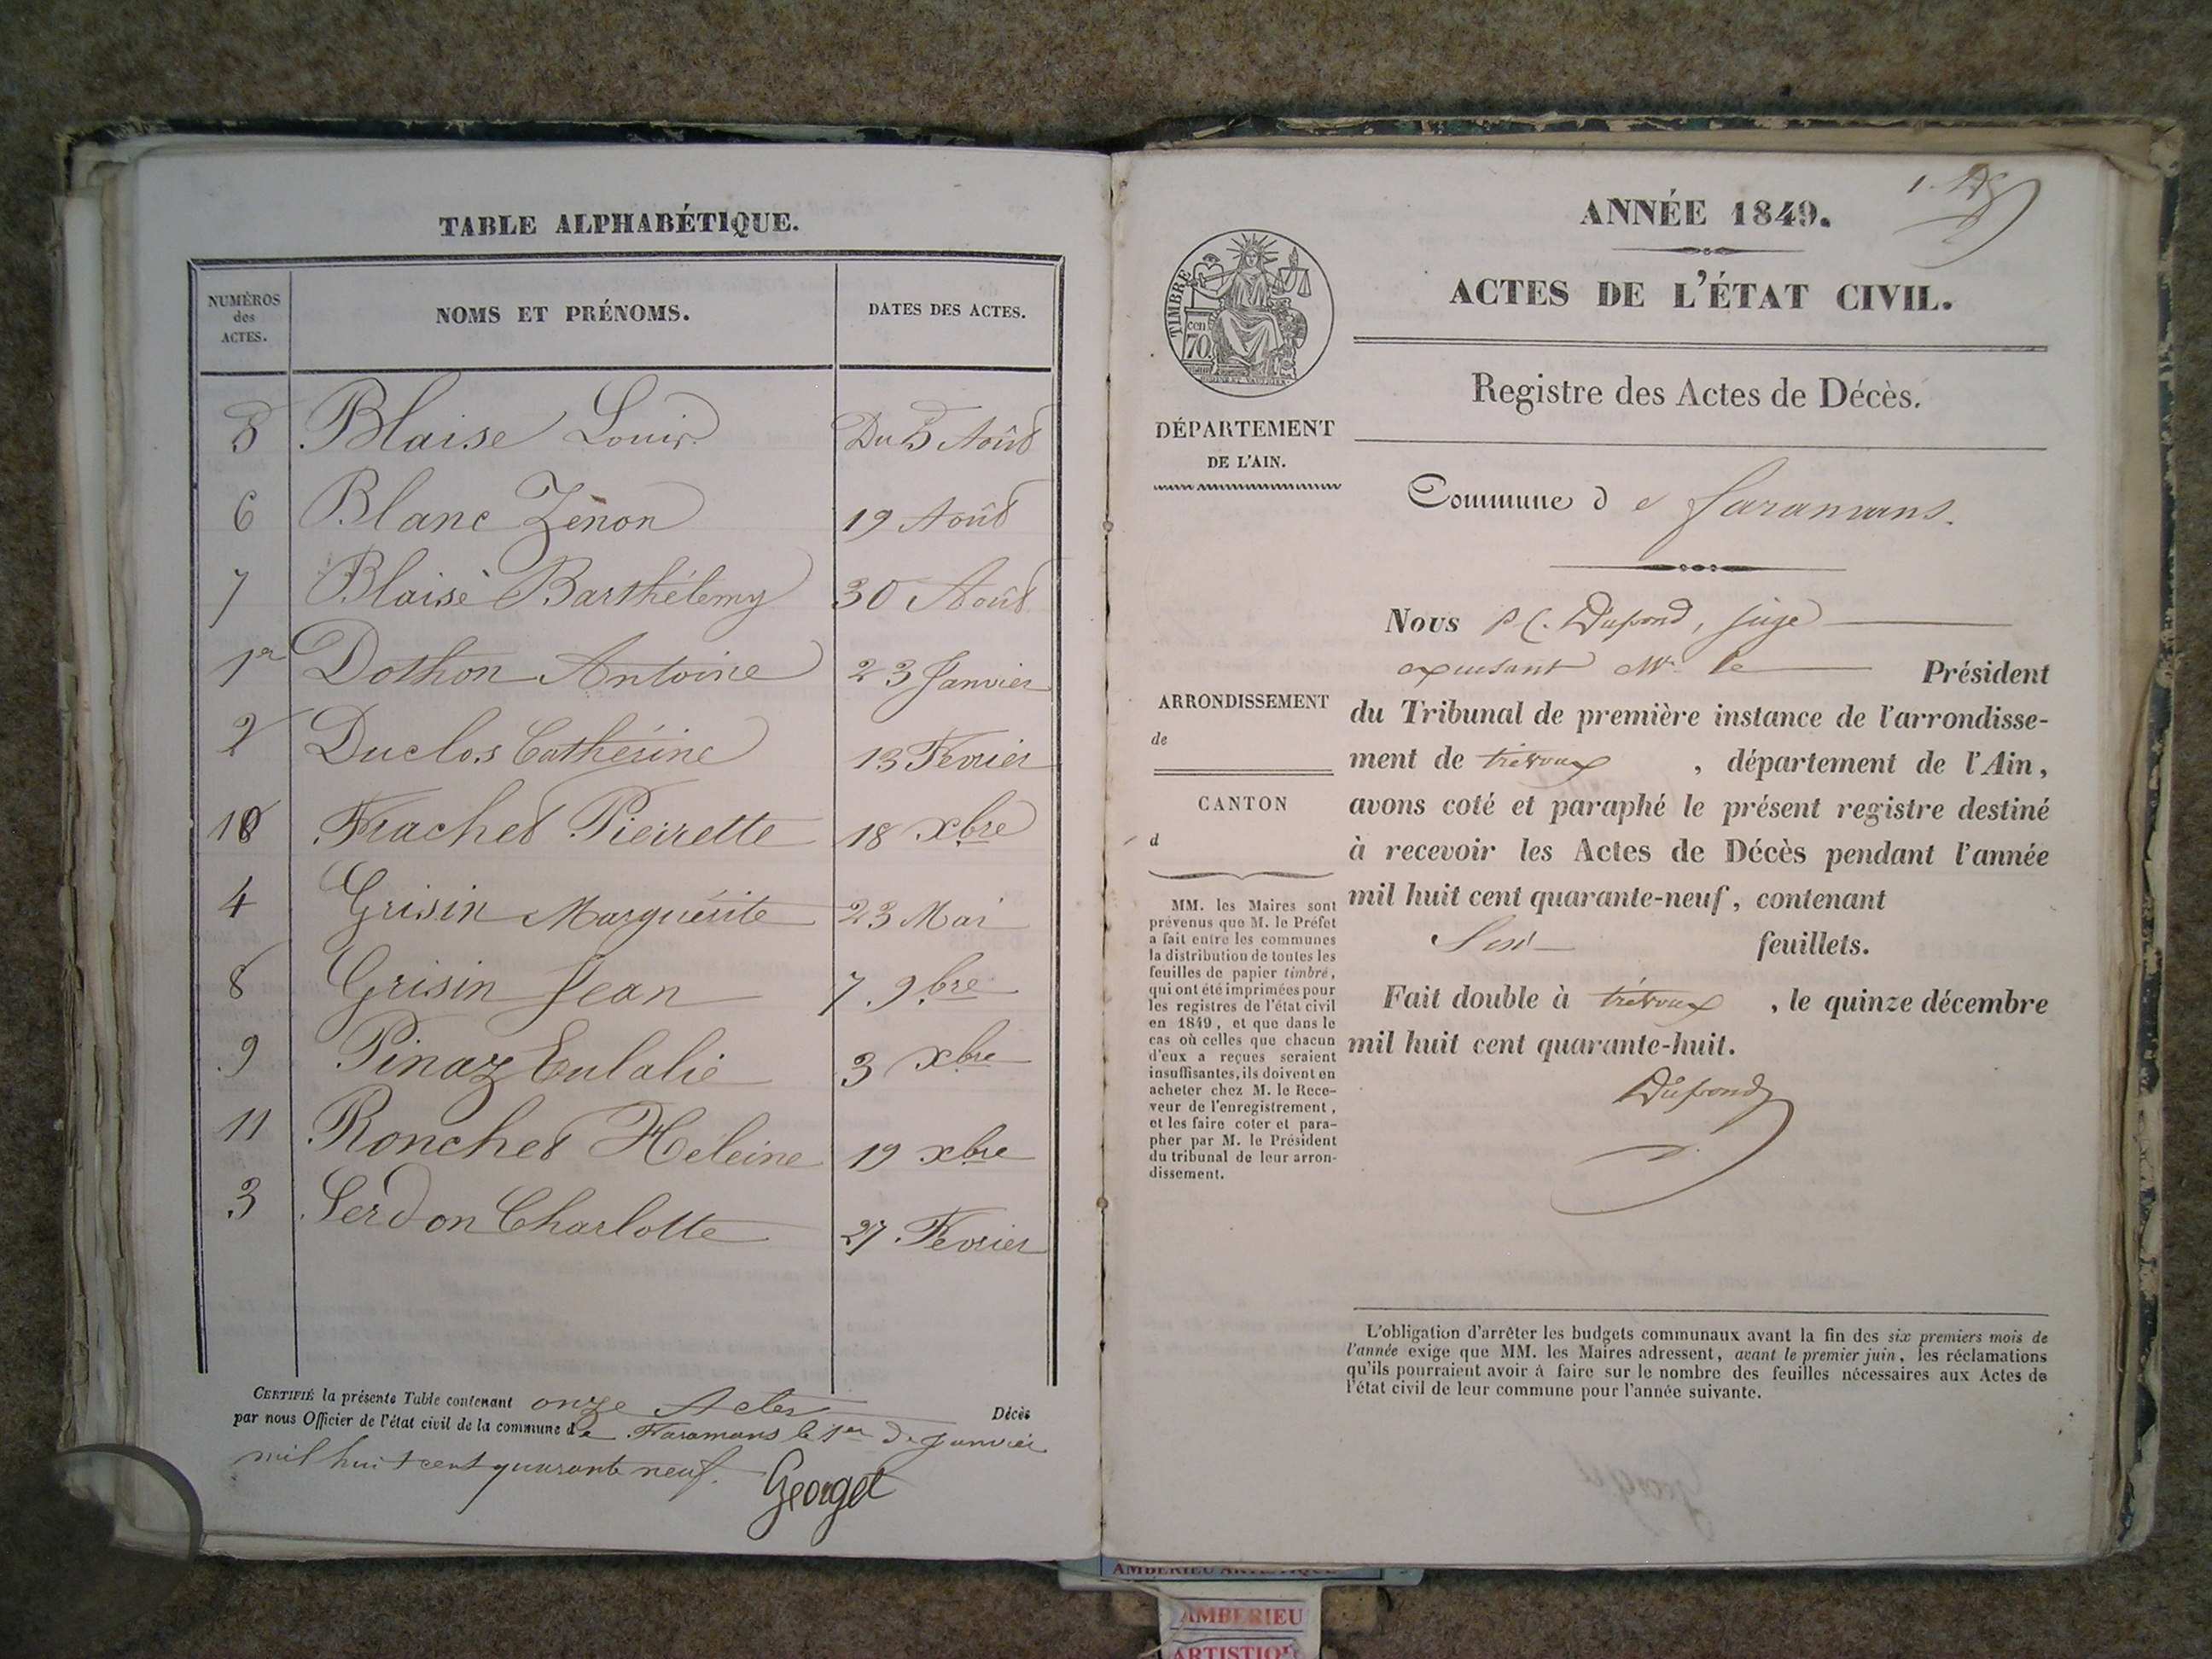 TABLE ALPHABÉTIQUE.
NUMÉROS
des
ACTES.
NOMS ET PRÉNOMS.
DATES DES ACTES.
5 Blaise Louis Du 5 Août
6 Blanc Zénon 19 Août
7 Blaise Barthélemy 30 Août
1er Dothon Antoine 23 Janvier
2 Duclos Cathérine 13 Fevrier
10 Frachet Pierrette 18 xbre
4 Grisin Marguérite 23 Mai
8 Grisin Jean 7 9bre
9 Pinaz Eulalie 3 xbre
11 Ronchet Héleine 19 xbre
3 Serdon Charlotte 27 Fevrier
CERTIFIÉ la présente Table contenant onze Actes Décès
par nous Officier de l'état civil de la commune de Faramans le 1er de Janvier
mil huit cent quarante neuf.
Georget
1.
ANNÉE 1849.
ACTES DE L'ÉTAT CIVIL.
TIMBRE
cen
70.
Registre des Actes de Décès.
DÉPARTEMENT
DE L'AIN.
Commune d e faramans.
Nous P C. Dupond, juge
excusant Mr le Président
ARRONDISSEMENT
de
du Tribunal de première instance de l'arrondisse-
ment de trévoux , département de l'Ain,
CANTON
d
avons coté et paraphé le présent registre destiné
à recevoir les Actes de Décès pendant l'année
mil huit cent quarante-neuf, contenant
feuillets.
Fait double à trévoux , le quinze décembre
mil huit cent quarante-huit.
Dupond
MM. les Maires sont
prévenus que M. le Préfet
a fait entre les communes
la distribution de toutes les
feuilles de papier timbré,
qui ont été imprimées pour
les registres de l'état civil
en 1849, et que dans le
cas où celles que chacun
d'eux a reçues seraient
insuffisantes, ils doivent en
acheter chez M. le Rece-
veur de l'enregistrement,
et les faire coter et para-
pher par M. le Président
du tribunal de leur arron-
dissement.
L'obligation d'arrêter les budgets communaux avant la fin des six premiers mois de
l'année exige que MM. les Maires adressent, avant le premier juin, les réclamations
qu'ils pourraient avoir à faire sur le nombre des feuilles nécessaires aux Actes de
l'état civil de leur commune pour l'année suivante.
AMBERIEU ARTISTIQUE
AMBERIEU
ARTISTIQUE